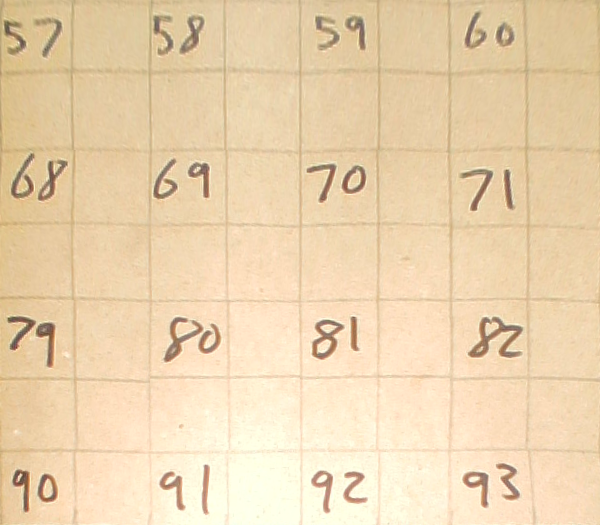 57 58 59 60
68 69 70 71
79 80 81 82
90 91 92 93